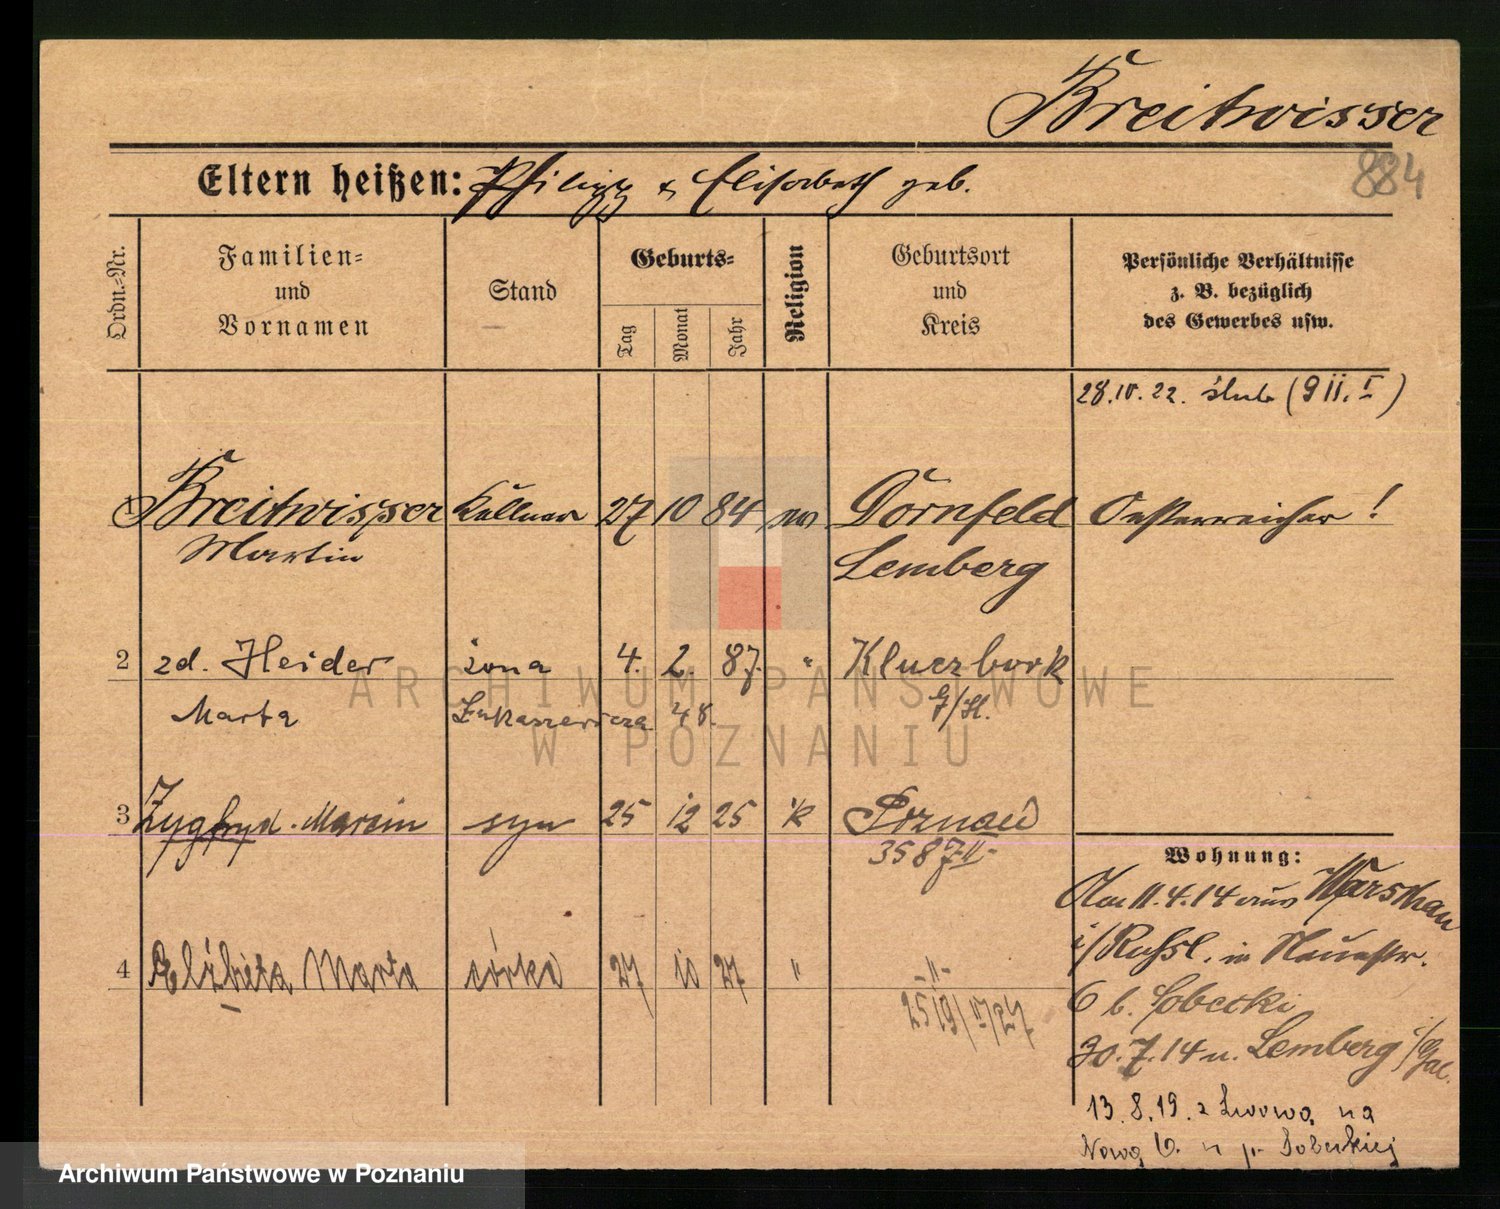 Breitwisser
884
Eltern heißen: Philipp & Elisabeth geb.
Ordn.-Nr.
Familien-
und
Vornamen
Stand
Geburts-
Tag
Monat
Jahr
Religion
Geburtsort
und
Kreis
Persönliche Verhältnisse
z. B. bezüglich
des Gewerbes usw.
28.IV.22. ślub (9 II. I)
1 Breitwisser Kellner 27 10 84 Dornfeld Oesterreicher!
Martin Lemberg
2 zd. Heider żona 4. 2. 87. " Kluczbork
Marta Łukaszewicza 48. G/Śl.
3 Zygfryd-Marcin syn 25 12 25 k Poznań
3587-II-
Wohnung:
Am 11.4.14 aus Warschau
i/Russl. in Neuestr.
4 Elżbieta Marta córka 27 10 27 " -"-
6 b. Sobecki
30.7.14 n. Lemberg i/Gal.
13.8.19. z Lwowa na
Nową 6. n p. Sobeckiej
ARCHIWUM PAŃSTWOWE
W POZNANIU
Archiwum Państwowe w Poznaniu